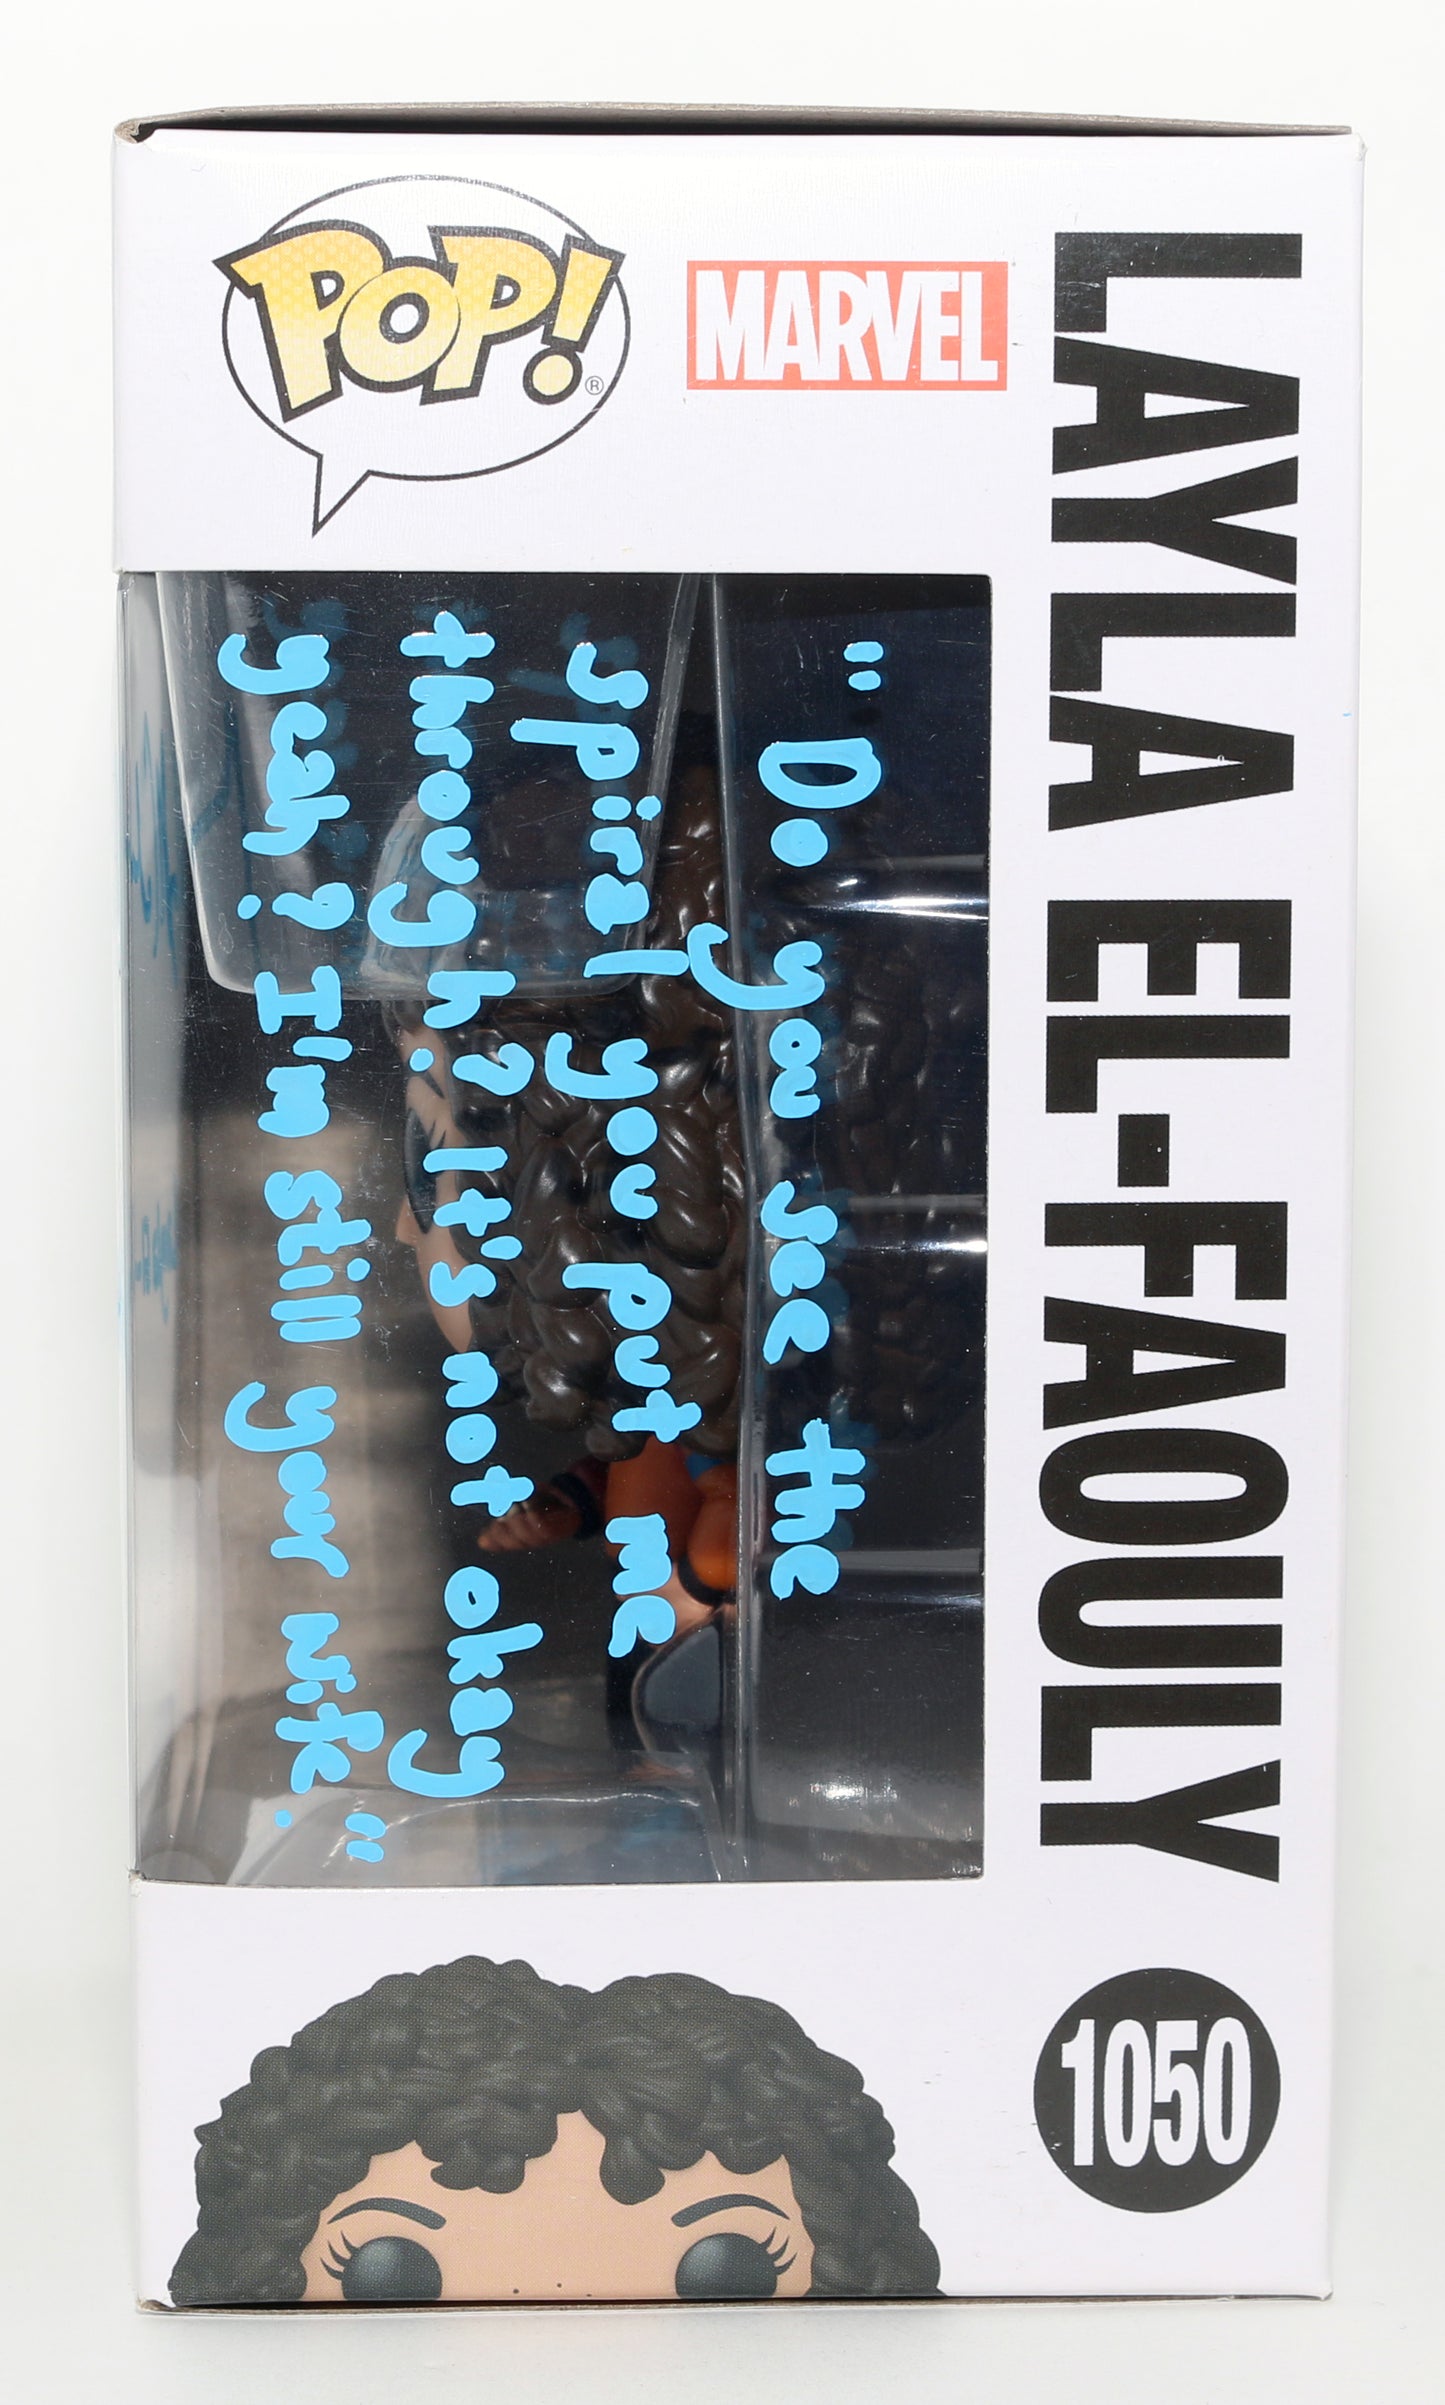 POP!
®
MARVEL
LAYLA EL-FAOULY
"Do you see the
spiral you put me
through? It's not okay
yeah? I'm still your wife."
1050